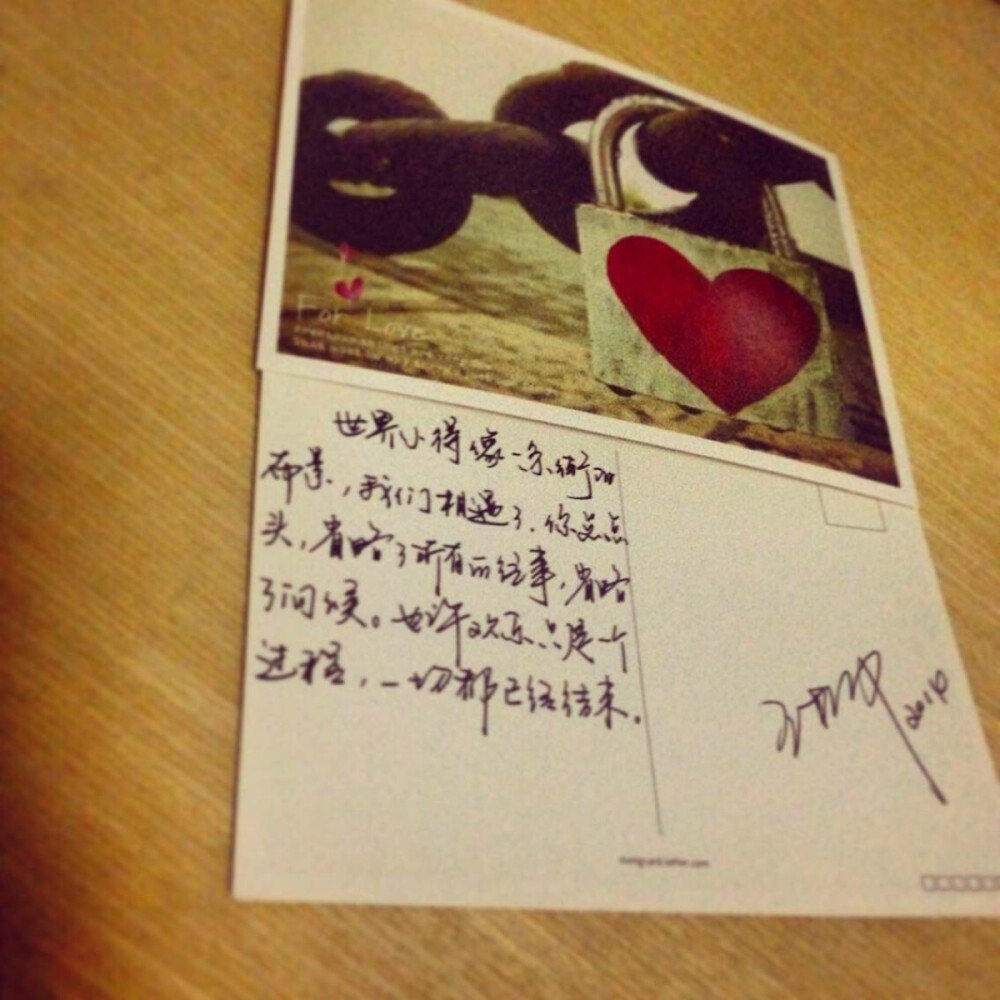 For Love
世界小得像一条街的
布景，我们相遇了，你点点
头，省略了所有的往事，省略
了问候。也许欢乐只是一个
过程，一切都已经结束。
2014